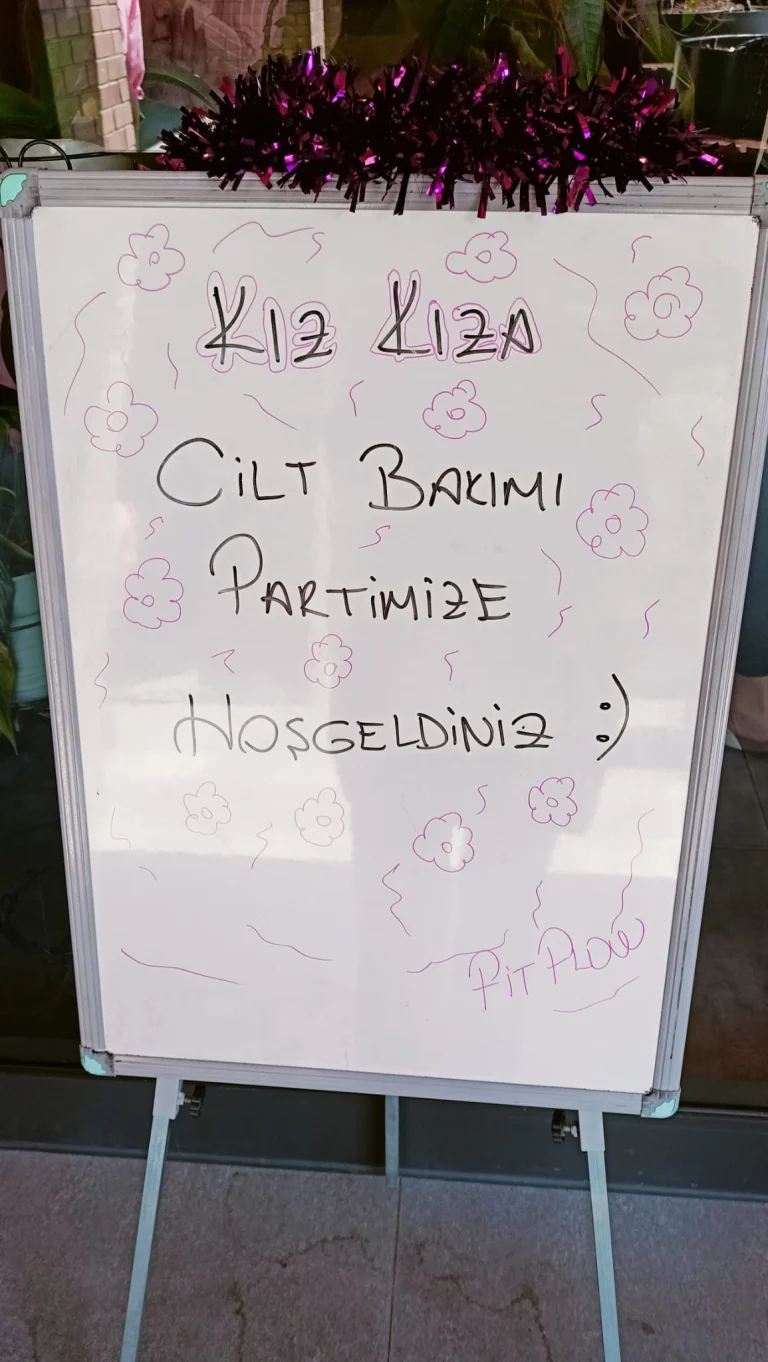 KIZ KIZA
CiLT BAKIMI
PARTiMiZE
HOŞGELDiNiZ :)
PiT PLOW